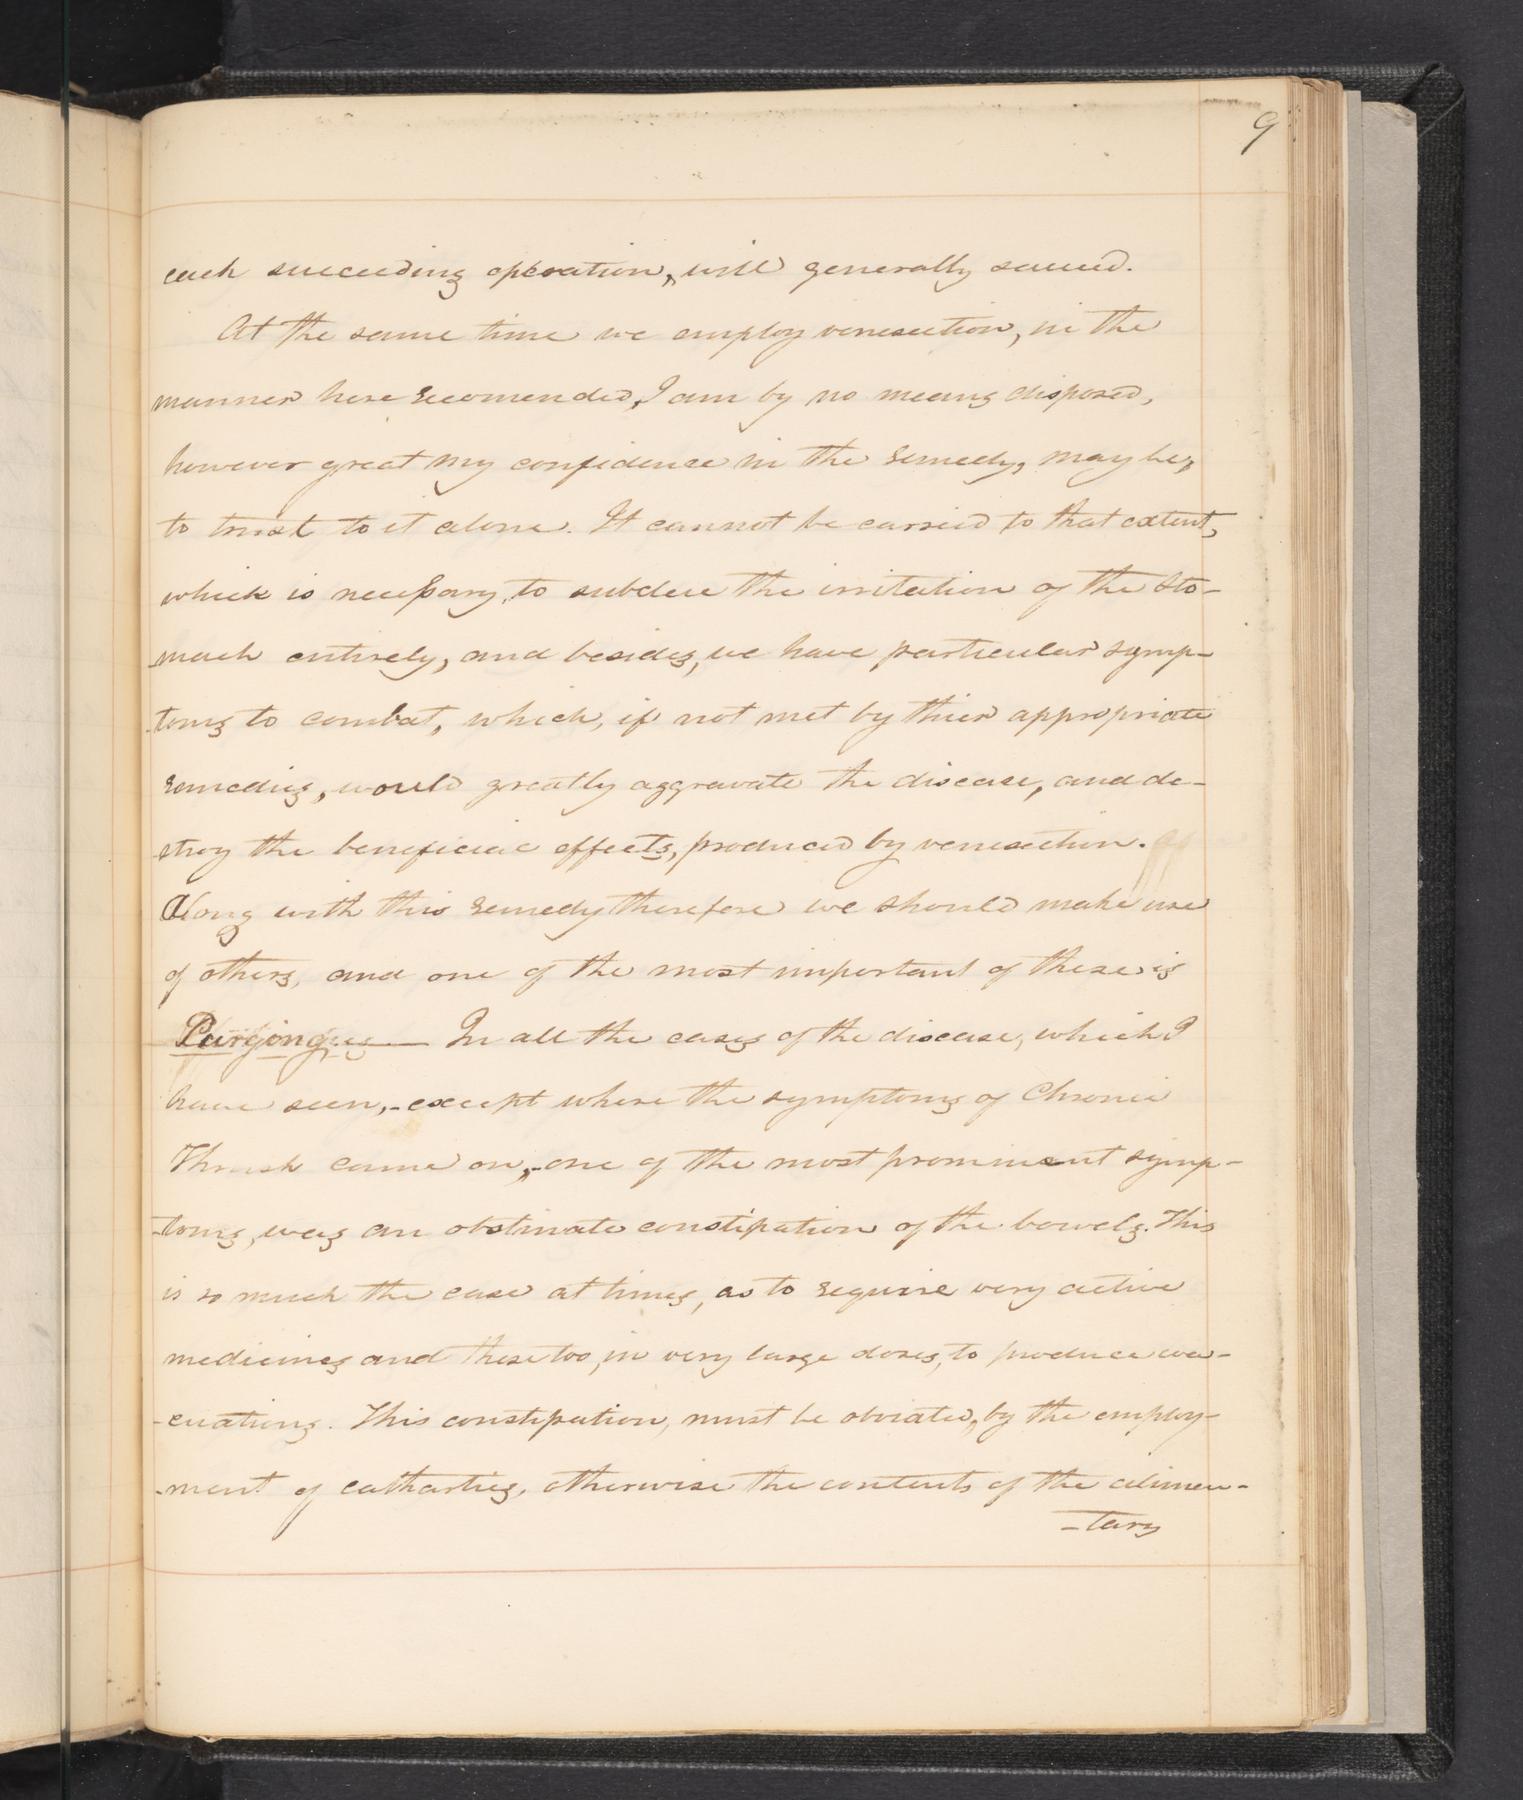 9
each succeeding operation, will generally succeed.
At the same time we employ venesection, in the
manner here recomended, I am by no means disposed,
however great my confidence in the remedy, may be,
to trust to it alone. It cannot be carried to that extent,
which is necessary, to subdue the irritation of the sto-
-mach entirely, and besides, we have particular symp-
-toms to combat, which, if not met by thier appropriate
remedies, would greatly aggravate the disease, and de-
-stroy the beneficial effects, produced by venesection.
Along with this remedy therefore we should make use
of others, and one of the most important of these is
Purging — In all the cases of the disease, which I
have seen, - except where the symptoms of Chronic
Thrush came on, - one of the most prominent symp-
-toms, was an obstinate constipation of the bowels. This
is so much the case at times, as to require very active
medicines and these too, in very large doses, to produce eva-
-cuations. This constipation, must be obviated, by the employ-
-ment of cathartics, otherwise the contents of the alimen-
-tary